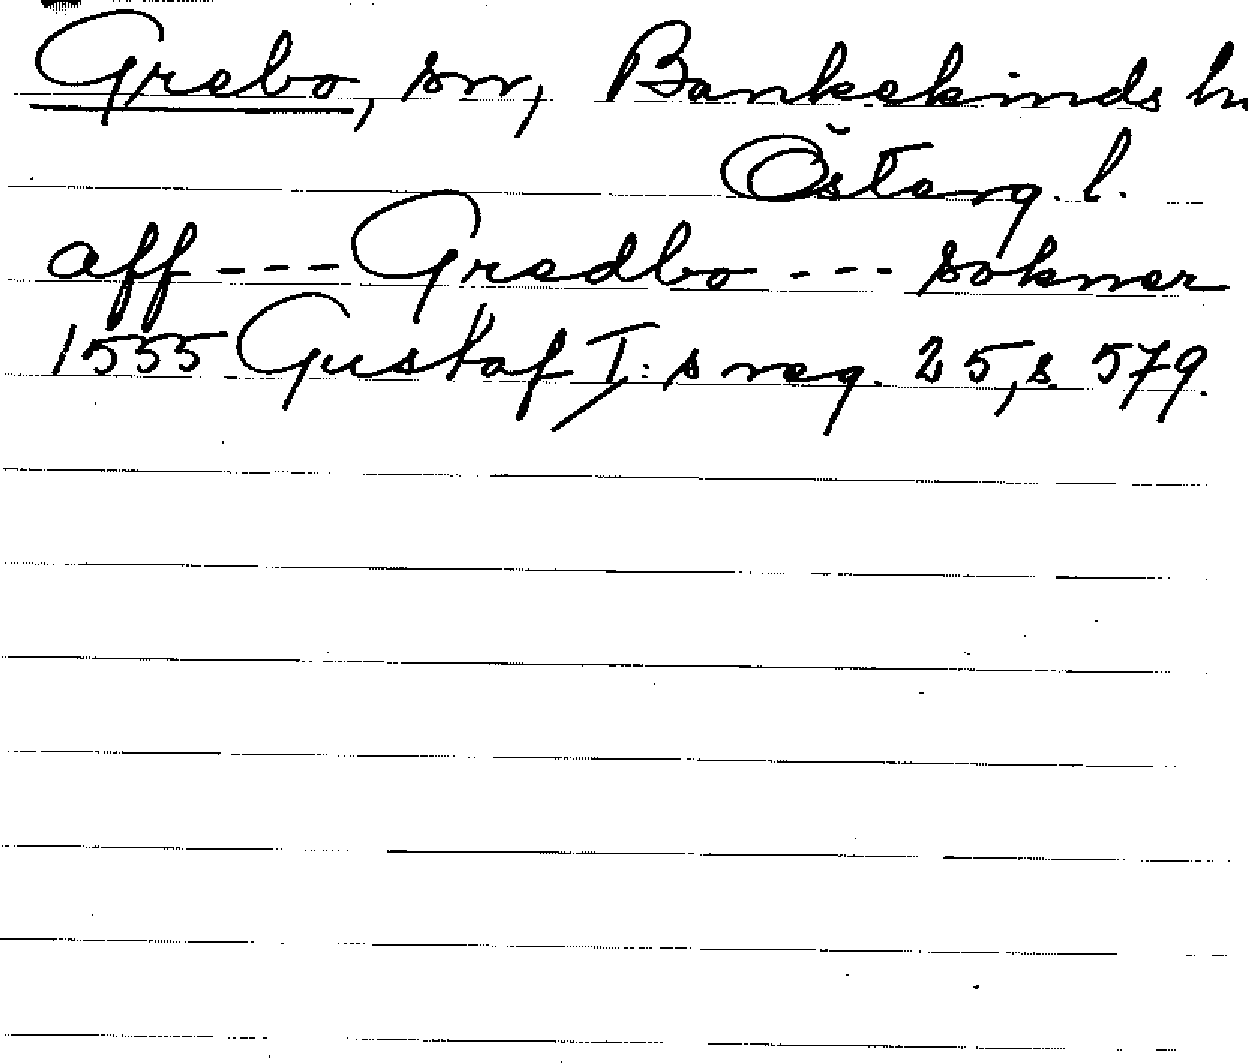 Grebo, sn, Bankekinds h
Österg. l.
aff --- Gredbo --- sokner
1555 Gustaf I:s reg. 25, s. 579.